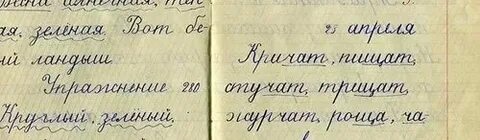 ая, зелёная. Вот бе-
ий ландыш
Упражнение 280
Круглый, зелёный,
25 апреля
Кричат, пищат,
стучат, трещат,
журчат, роща, ча-